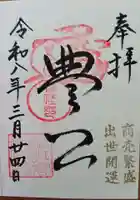 奉拝
商売繁盛
出世開運
豊公
令和八年三月廿四日